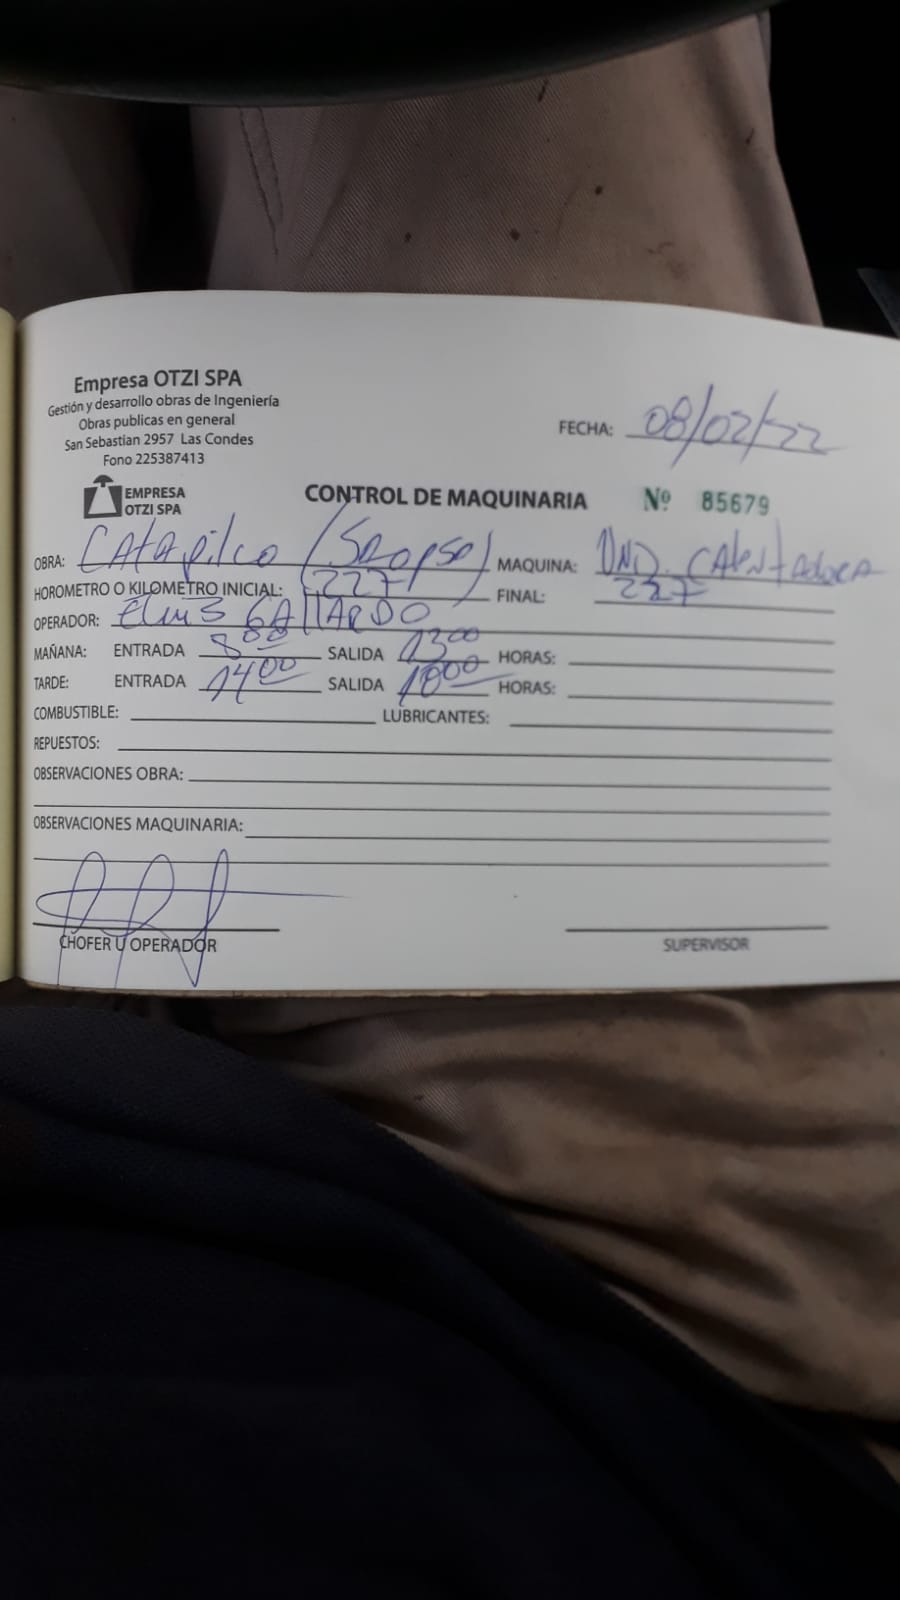 Empresa OTZI SPA
Gestión y desarrollo obras de Ingeniería
Obras publicas en general
San Sebastian 2957 Las Condes
Fono 225387413
FECHA: 08/02/22
EMPRESA
OTZI SPA
CONTROL DE MAQUINARIA Nº 85679
OBRA: CAtApilco / MAQUINA: UND. CAlentadora
HOROMETRO O KILOMETRO INICIAL: 227 FINAL: 227
OPERADOR: GAllARDO
MAÑANA: ENTRADA 8 00 SALIDA 13 00 HORAS:
TARDE: ENTRADA 14 00 SALIDA 18 00 HORAS:
COMBUSTIBLE: LUBRICANTES:
REPUESTOS:
OBSERVACIONES OBRA:
OBSERVACIONES MAQUINARIA:
CHOFER U OPERADOR SUPERVISOR